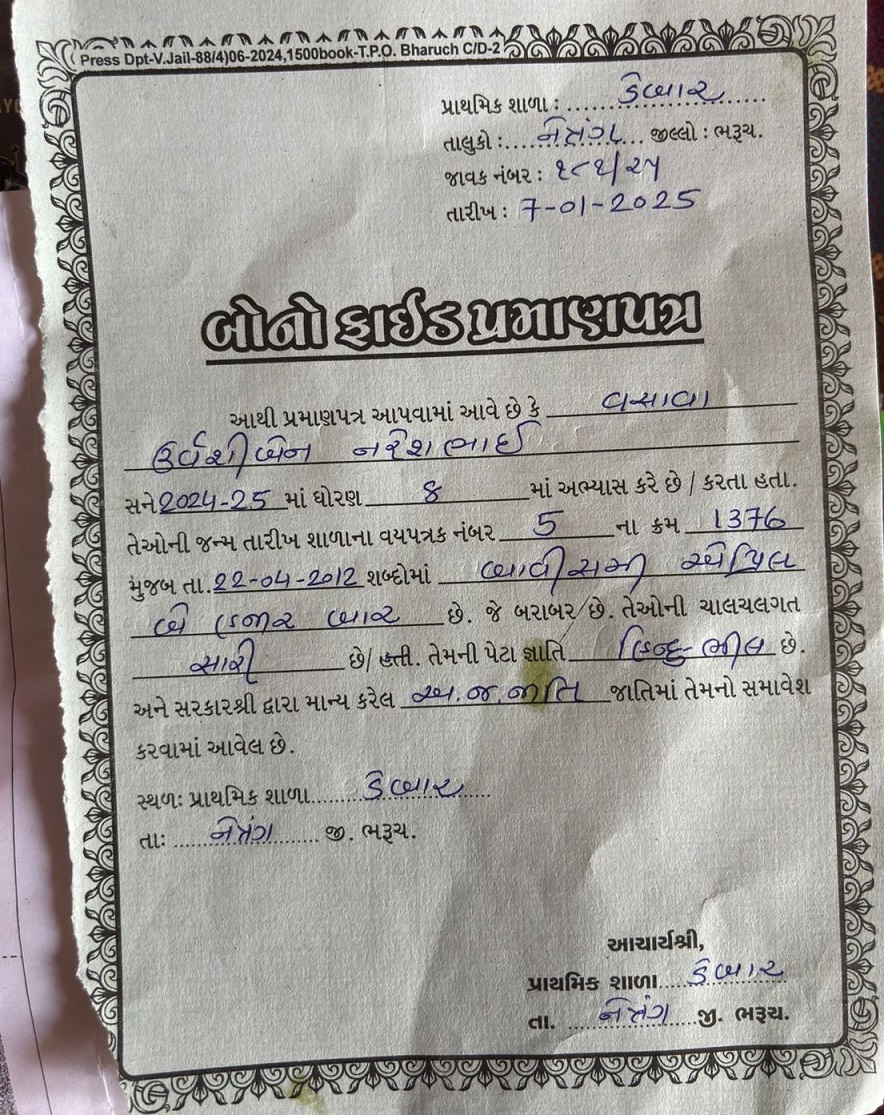 Press Dpt-V.Jail-88/4)06-2024,1500book-T.P.O. Bharuch C/D-2
પ્રાથમિક શાળા : કેલ્વાર
તાલુકો : નેત્રંગ જીલ્લો : ભરૂચ.
જાવક નંબર : ૨૮૨/૨૫
તારીખ : 7-01-2025
બોનોફાઈડ પ્રમાણપત્ર
આથી પ્રમાણપત્ર આપવામાં આવે છે કે વસાવા
ઉર્વશીબેન નરેશભાઈ
સને 2024-25 માં ધોરણ 8 માં અભ્યાસ કરે છે / કરતા હતા.
તેઓની જન્મ તારીખ શાળાના વયપત્રક નંબર 5 ના ક્રમ 1376
મુજબ તા. 22-04-2012 શબ્દોમાં બાવીસમી એપ્રિલ
બે હજાર બાર છે. જે બરાબર છે. તેઓની ચાલચલગત
સારી છે/ હતી. તેમની પેટા જ્ઞાતિ હિન્દુ ભીલ છે.
અને સરકારશ્રી દ્વારા માન્ય કરેલ અ.જ.જાતિ જાતિમાં તેમનો સમાવેશ
કરવામાં આવેલ છે.
સ્થળઃ પ્રાથમિક શાળા
તાઃ નેત્રંગ જી. ભરૂચ.
આચાર્યશ્રી,
પ્રાથમિક શાળા
તા. નેત્રંગ જી. ભરૂચ.